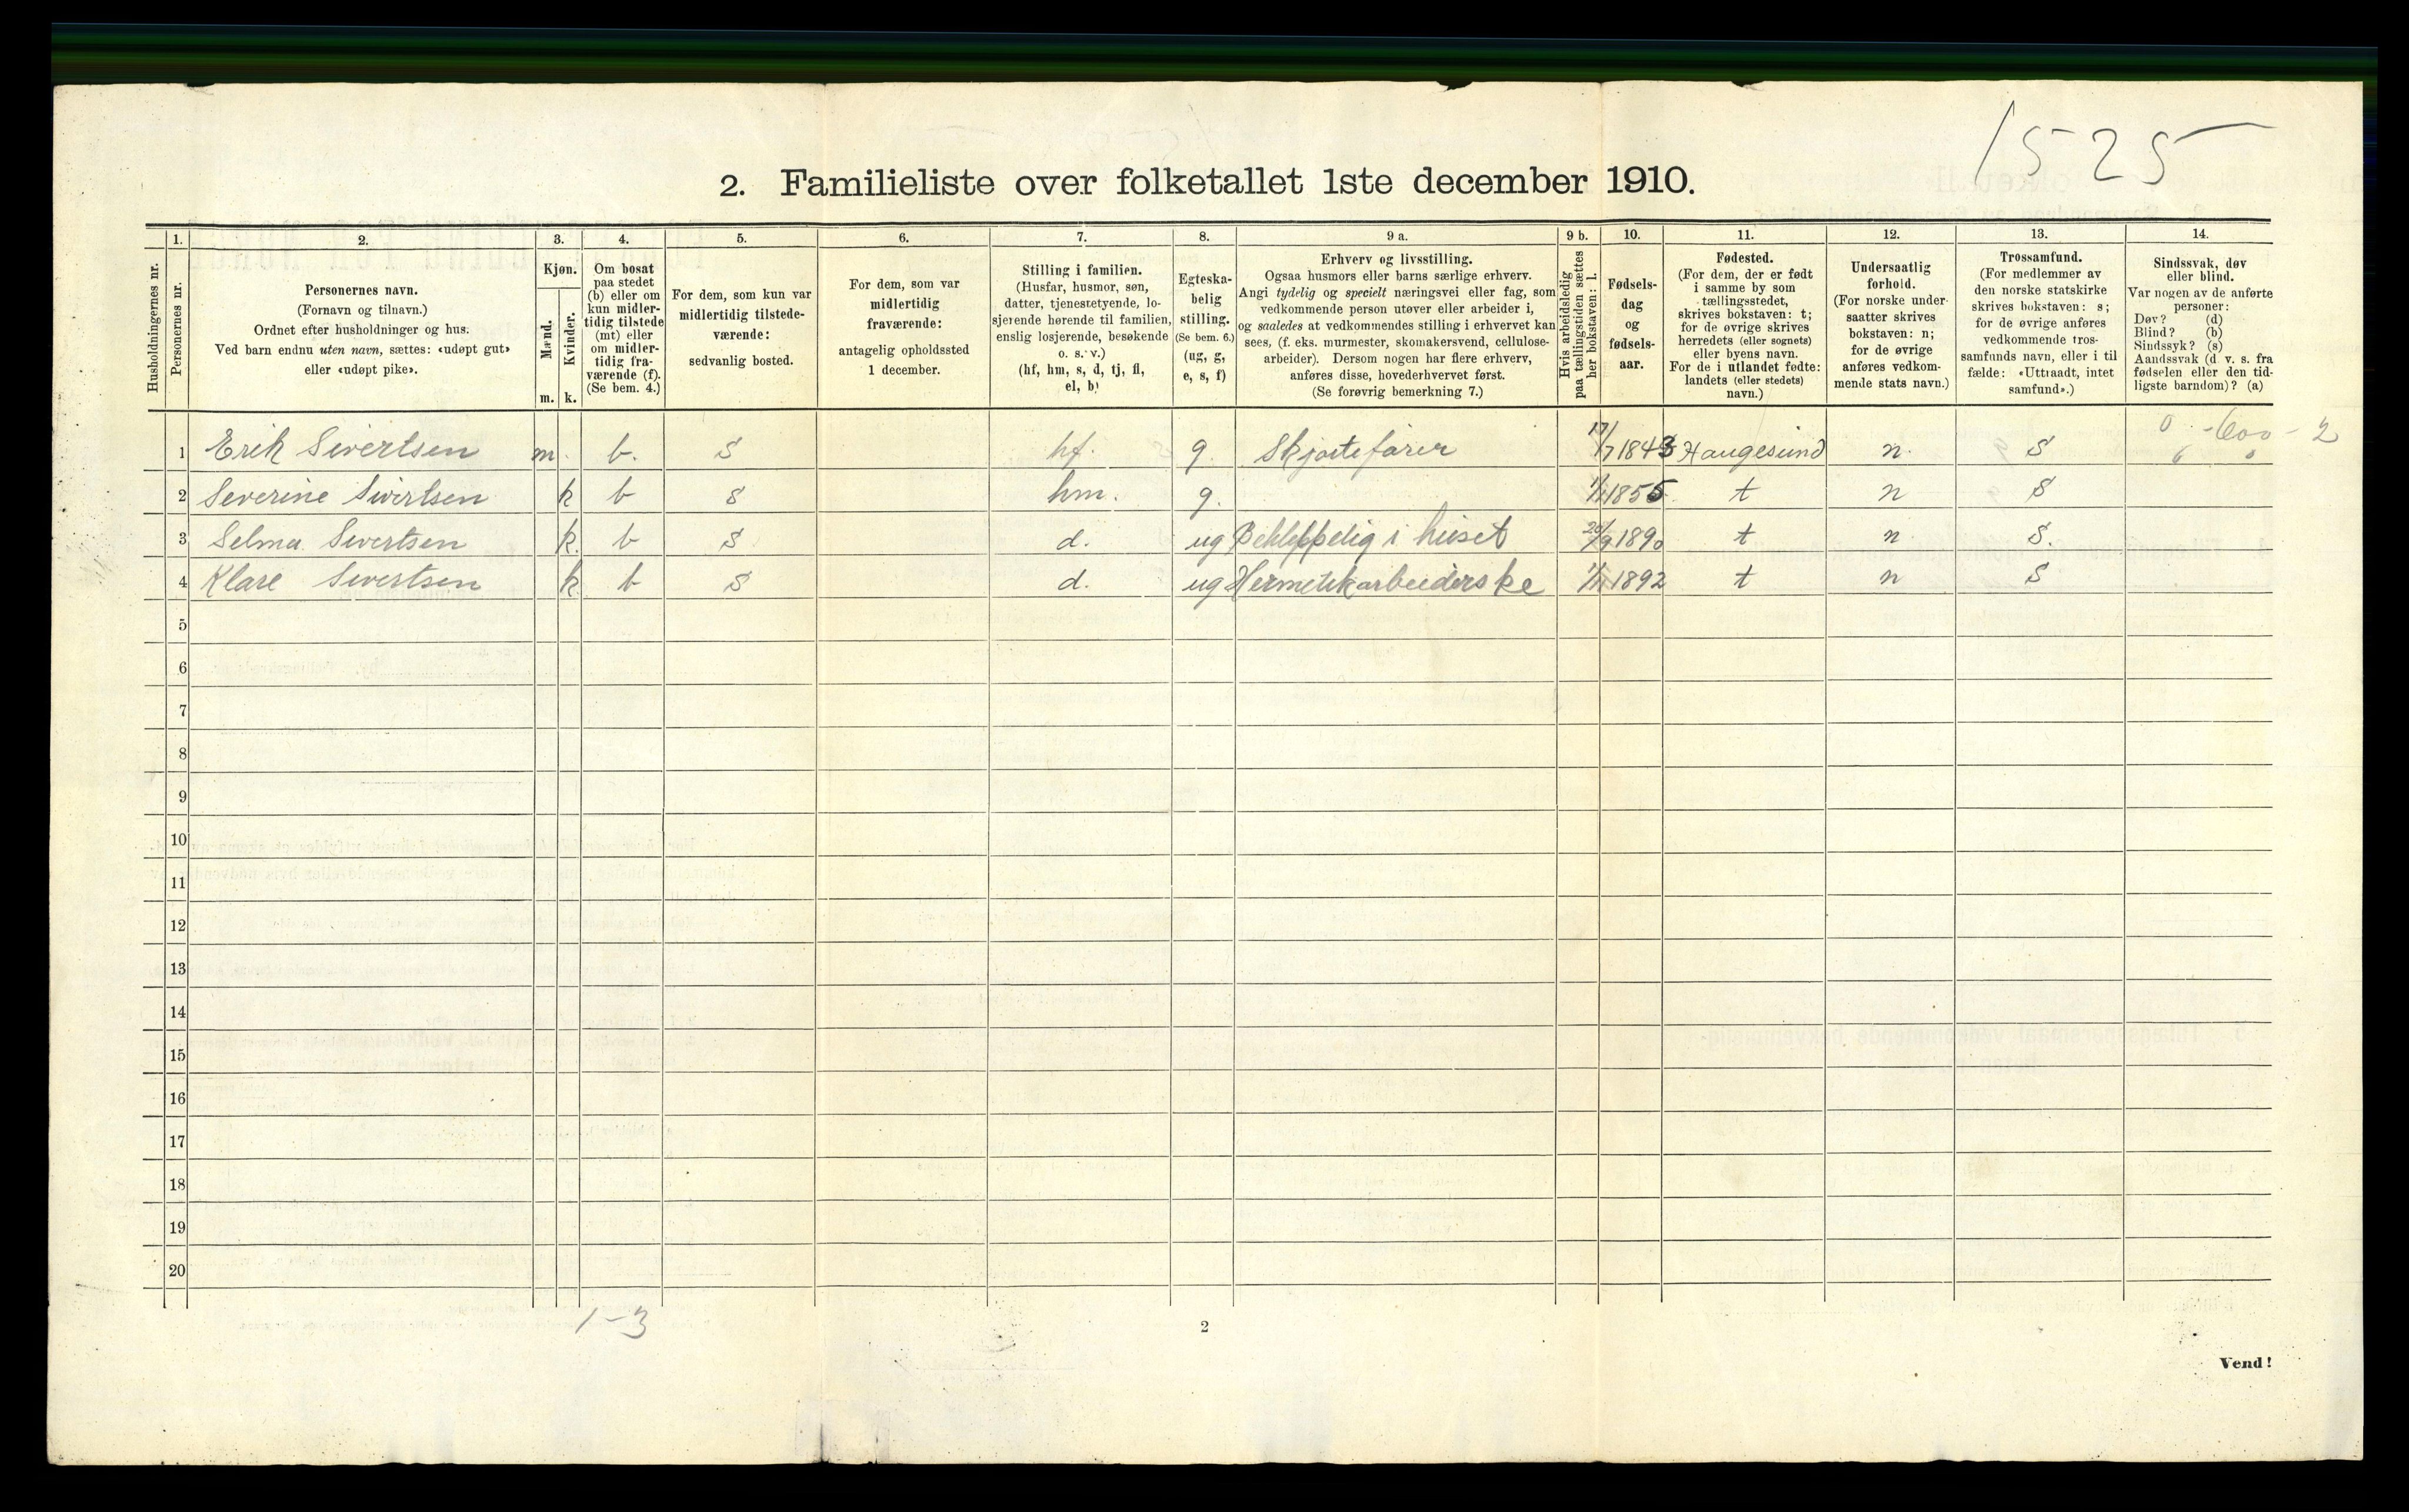 1525
2. Familieliste over folketallet 1ste december 1910.
1. 2. 3. 4. 5. 6. 7. 8. 9 a. 9 b. 10. 11. 12. 13. 14.
Husholdningernes nr.
Personernes nr.
Personernes navn.
(Fornavn og tilnavn.)
Ordnet efter husholdninger og hus.
Ved barn endnu uten navn, sættes: «udøpt gut»
eller «udøpt pike».
Kjøn.
Mænd.
Kvinder.
m. k.
Om bosat
paa stedet
(b) eller om
kun midler-
tidig tilstede
(mt) eller
om midler-
tidig fra-
værende (f).
(Se bem. 4.)
For dem, som kun var
midlertidig tilstede-
værende:
sedvanlig bosted.
For dem, som var
midlertidig
fraværende:
antagelig opholdssted
1 december.
Stilling i familien.
(Husfar, husmor, søn,
datter, tjenestetyende, lo-
sjerende hørende til familien,
enslig losjerende, besøkende
o. s. v.)
(hf, hm, s, d, tj, fl,
el, b)
Egteska-
belig
stilling.
(Se bem. 6.)
(ug, g,
e, s, f)
Erhverv og livsstilling.
Ogsaa husmors eller barns særlige erhverv.
Angi tydelig og specielt næringsvei eller fag, som
vedkommende person utøver eller arbeider i,
og saaledes at vedkommendes stilling i erhvervet kan
sees, (f. eks. murmester, skomakersvend, cellulose-
arbeider). Dersom nogen har flere erhverv,
anføres disse, hovederhvervet først.
(Se forøvrig bemerkning 7.)
Hvis arbeidsledig
paa tællingstiden sættes
her bokstaven: l.
Fødsels-
dag
og
fødsels-
aar.
Fødested.
(For dem, der er født
i samme by som
tællingsstedet,
skrives bokstaven: t;
for de øvrige skrives
herredets (eller sognets)
eller byens navn.
For de i utlandet fødte:
landets (eller stedets)
navn.)
Undersaatlig
forhold.
(For norske under-
saatter skrives
bokstaven: n;
for de øvrige
anføres vedkom-
mende stats navn.)
Trossamfund.
(For medlemmer av
den norske statskirke
skrives bokstaven: s;
for de øvrige anføres
vedkommende tros-
samfunds navn, eller i til
fælde: «Uttraadt, intet
samfund».)
Sindssvak, døv
eller blind.
Var nogen av de anførte
personer:
Døv? (d)
Blind? (b)
Sindssyk? (s)
Aandssvak (d. v. s. fra
fødselen eller den tid-
ligste barndom)? (a)
0 - 600 - 2
1 Erik Sivertsen m. b. S hf. g. Skjøitefører 17/7 1843 Haugesund n. S
2 Severine Sivertsen k b S hm. g. 1855 t n S
3 Selma Sivertsen k. b S d. ug i huset 1890 t n S.
4 Klare Sivertsen k b S d. ug Hermetikarbeiderske 1892 t n S
5
6
7
8
9
10
11
12
13
14
15
16
17
18
19
20
1-3
2
Vend!